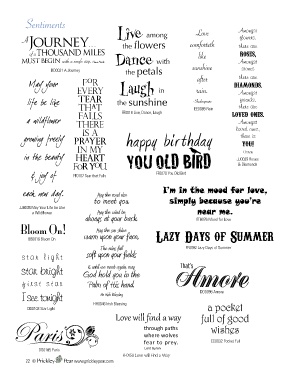 Sentiments
A JOURNEY
OF A THOUSAND MILES
MUST BEGIN with a single step.
Live among
the flowers
Dance with
the petals
Laugh in
the sunshine
Love
comforteth
like
sunshine
after
rain.
Shakespeare
Amongst
flowers,
there are
ROSES,
Amongst
there are
DIAMONDS,
Amongst
people,
there are
LOVED ONES,
Amongst
loved ones,
there is
YOU!
May your
life be like
a wildflower
growing freely
in the beauty
& joy of
each new day.
FOR
EVERY
TEAR
THAT
FALLS
THERE
IS A
PRAYER
IN MY
HEART
FOR YOU.
happy birthday
YOU OLD BIRD
I'm in the mood for love,
simply because you're
near me.
May the road rise
to meet you,
May the wind be
always at your back,
May the sun shine
warm upon your face,
The rains fall
soft upon your fields,
& until we meet again, may
God hold you in the
Palm of his hand.
Irish Blessing
Bloom On!
LAZY DAYS OF SUMMER
star light
star bright
first star
I see tonight
That's
Amore
Paris
Love will find a way
through paths
where wolves
fear to prey.
Lord Byron
a pocket
full of good
wishes
22 © Prickley Pear www.prickleypear.com